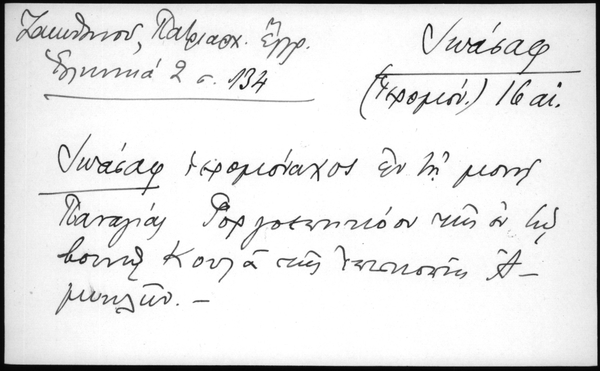 Ζακυθηνοῦ, Πατριαρχ. Ἔγγρ.
2 σ. 134
Ἰωάσαφ
(Ἱερομόν.) 16 αἰ.
Ἰωάσαφ ἱερομόναχος ἐν τῇ μονῇ
Παναγίας Γοργοεπηκόου τῆς ἐν τῷ
βουνῷ Κουλᾶ τῆς ἐπισκοπῆς Ἀ-
μυκλῶν. –